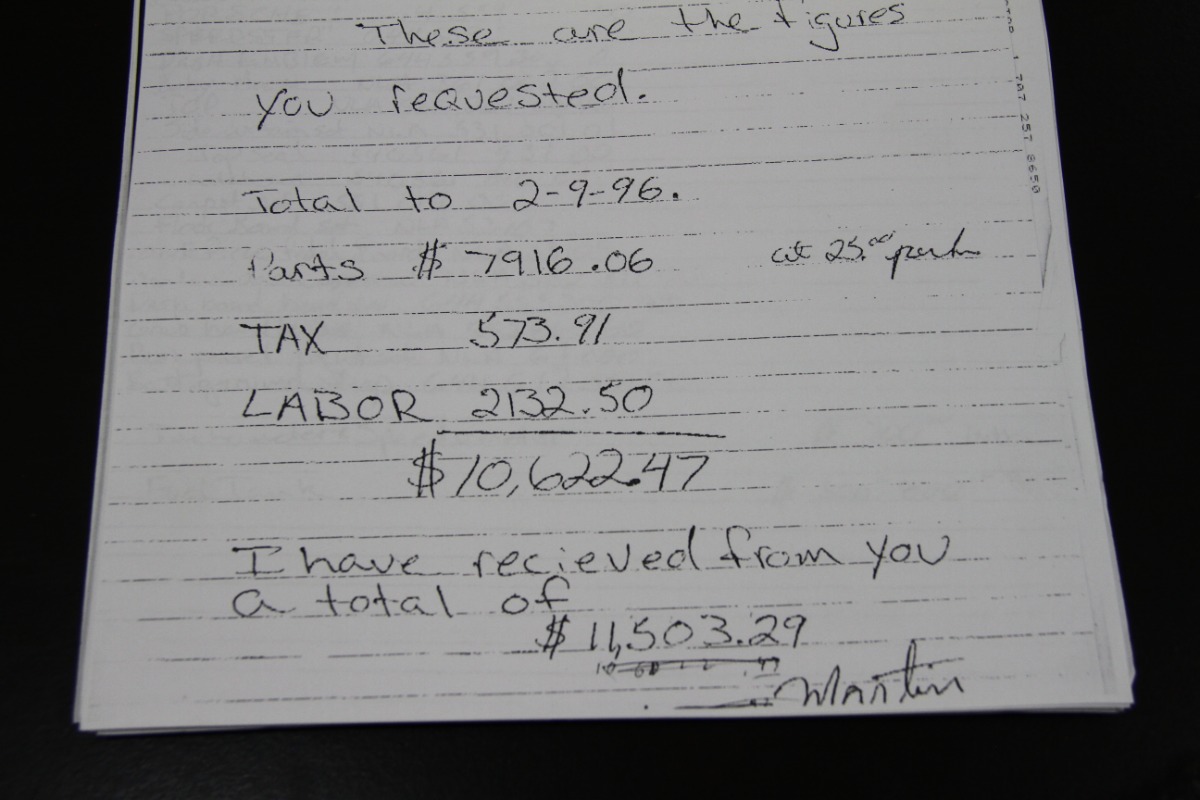 These are the figures
you requested.
Total to 2-9-96.
Parts $ 7916.06 at 25.00 per hr
TAX 573.91
LABOR 2132.50
$10,622.47
I have recieved from you
a total of
$ 11,503.29
Martin
707 257 8650